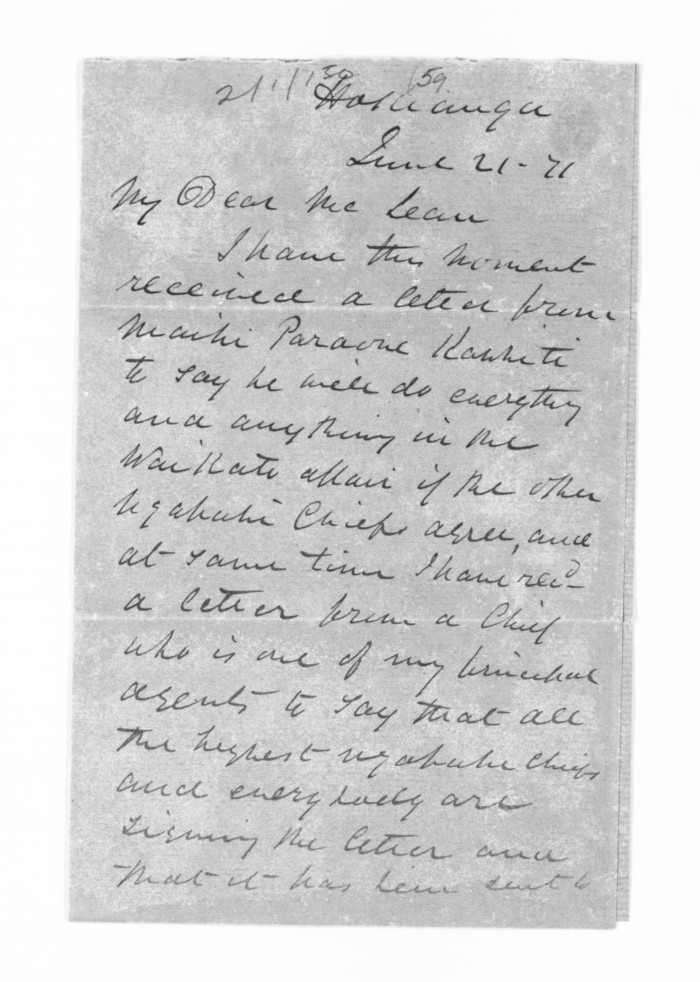 Hokianga
June 21 - 71
My Dear McLean
I have this moment
received a letter from
Maihi Paraone Kawhiti
to say he will do everything
and anything in the
Waikato affair if the other
Ngapuhi Chiefs agree, and
at same time I have recd
a letter from a Chief
who is one of my principal
agents to say that all
the highest ngapuhi chiefs
and everybody are
signing the letter and
that it has been sent to